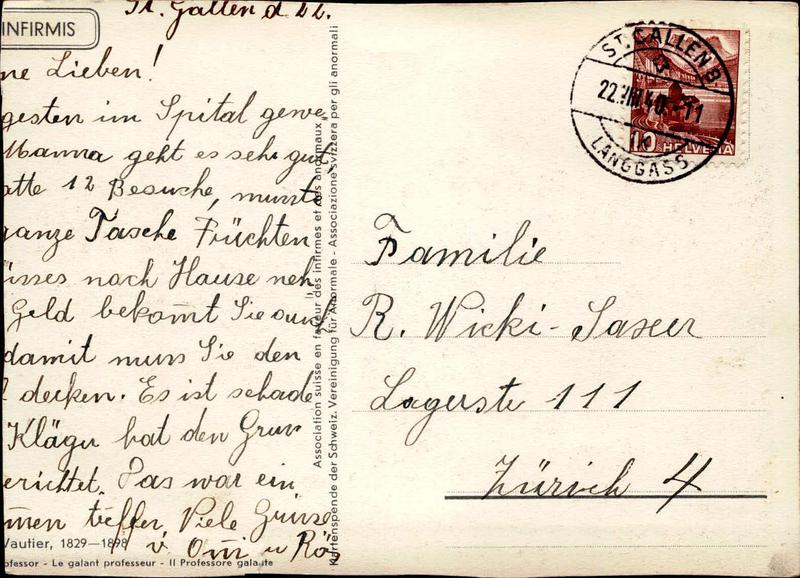 St. Gallen d 22.
INFIRMIS
ne Lieben!
gesten im Spital gewe
Mamma geht es sehr gut
atte 12 Besuche, musste
ganze Tasche Früchten
üsses nach Hause neh
Geld bekomt Sie auch
damit muss Sie den
decken. Es ist schade
Klägu hat den Grun
erichtet. Das war ein
men treffer. Viele Grüsse
v. Omi u Rös
Vautier, 1829—1898
ofessor - Le galant professeur - Il Professore galante
Association suisse en faveur des infirmes et des anormaux
Kartenspende der Schweiz. Vereinigung für Anormale - Associazione svizzera per gli anormali
ST. GALLEN 8
22.VIII.40.-11
LANGGASS
10 HELVETIA
Familie
R. Wicki-Saxer
Lagerstr 111
Zürich 4